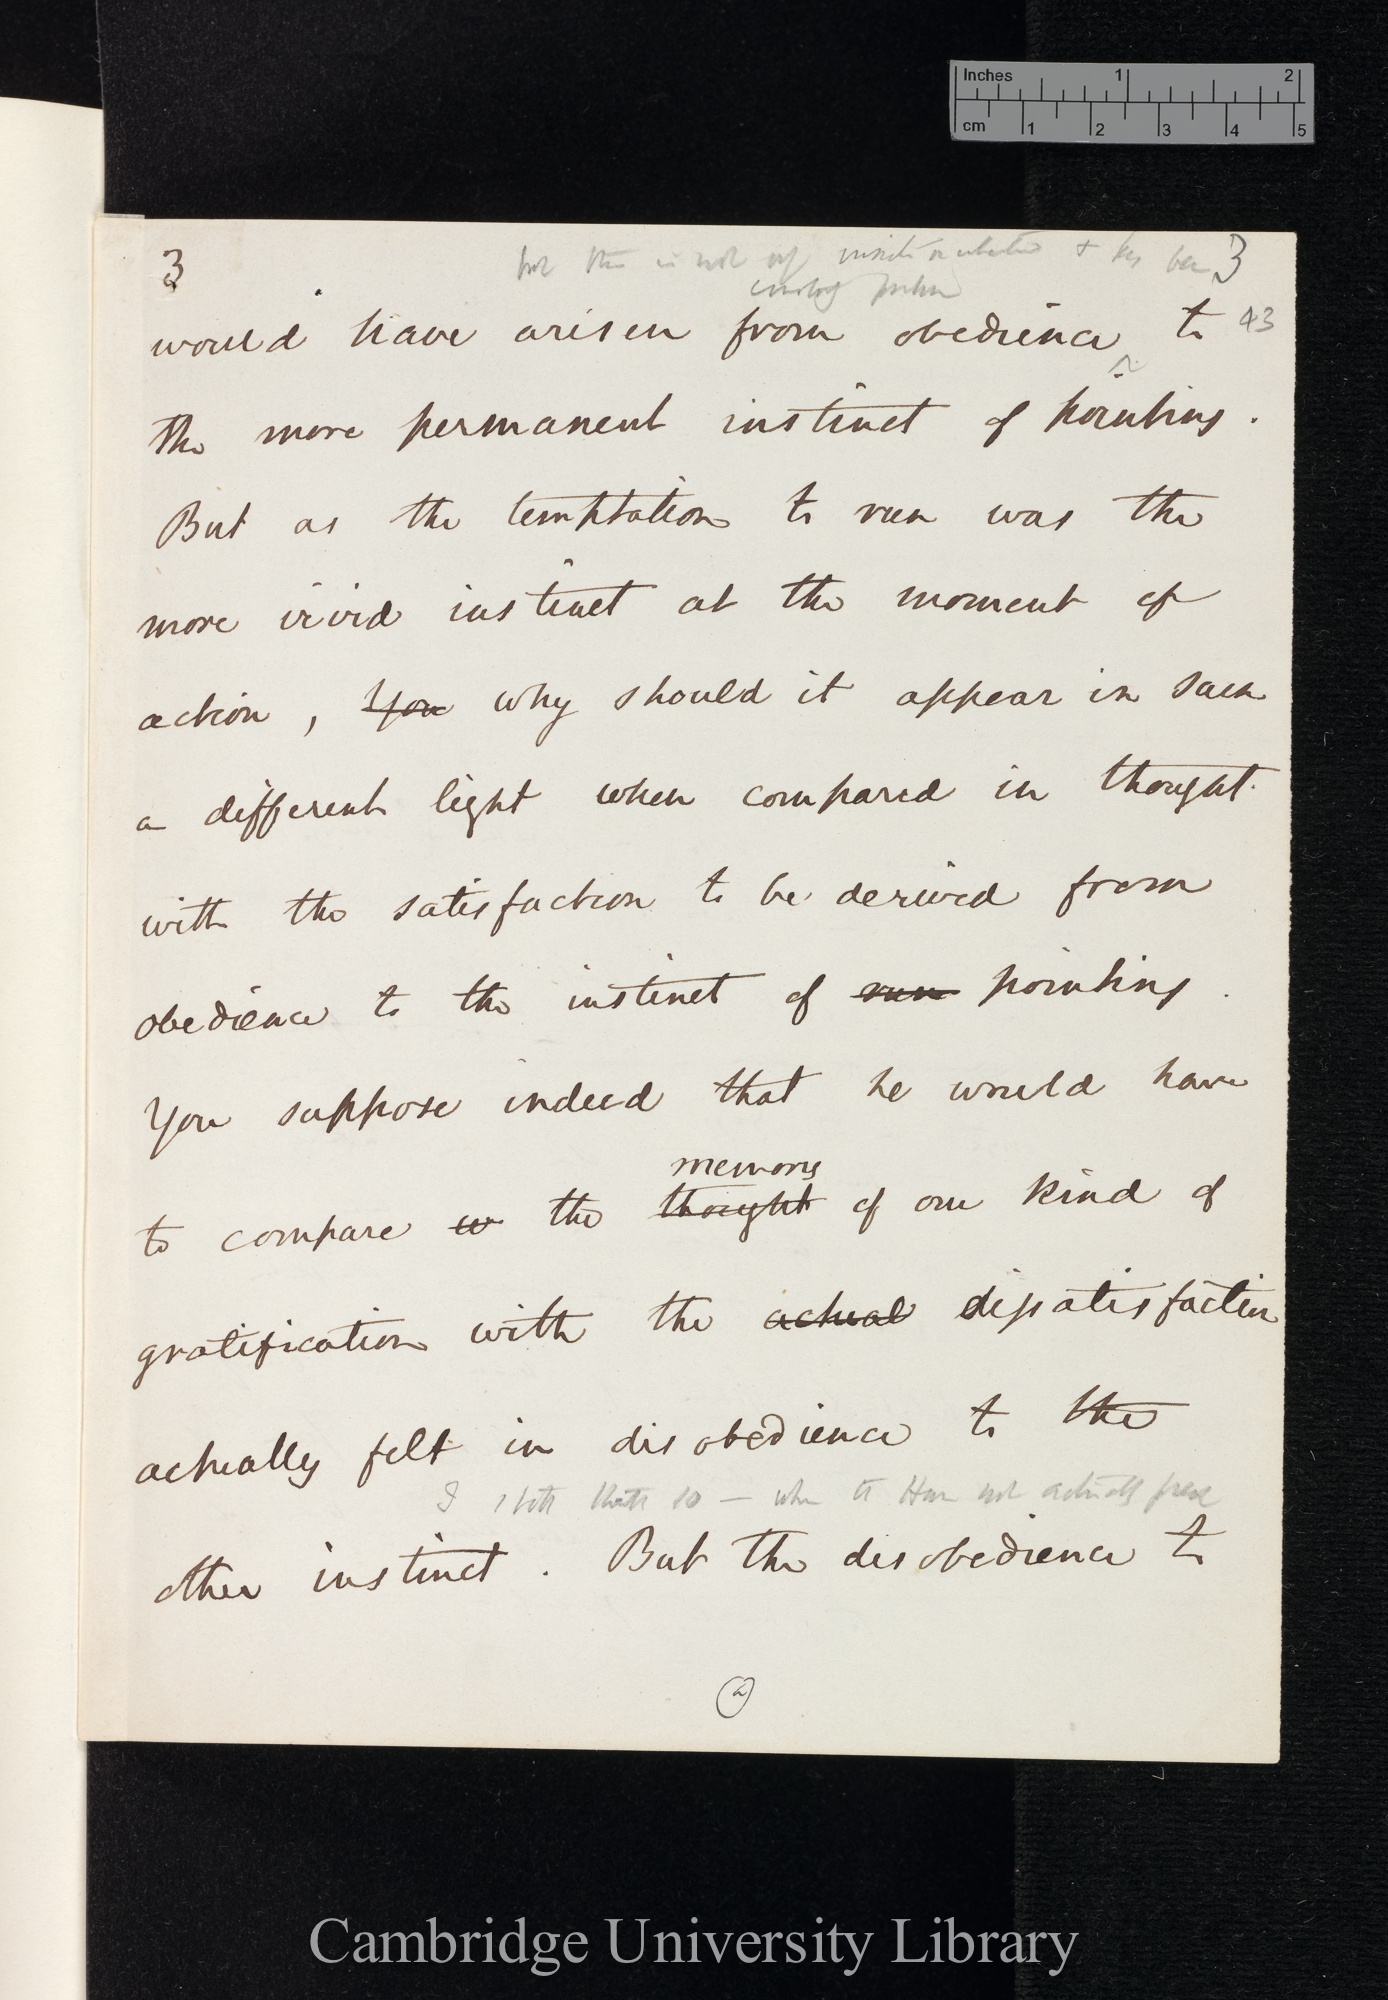 Inches 1 2
cm 1 2 3 4 5
3 3
but this is not & has been
43
would have arisen from obedience to
the more permanent instinct of pointing.
But as the temptation to run was the
more vivid instinct at the moment of
action, You why should it appear in such
a different light when compared in thought
with the satisfaction to be derived from
obedience to the instinct of run pointing.
You suppose indeed that he would have
memory
to compare w the thought of one kind of
gratification with the actual dissatisfaction
actually felt in disobedience to the
I so — when not actually
other instinct. But the disobedience to
Cambridge University Library